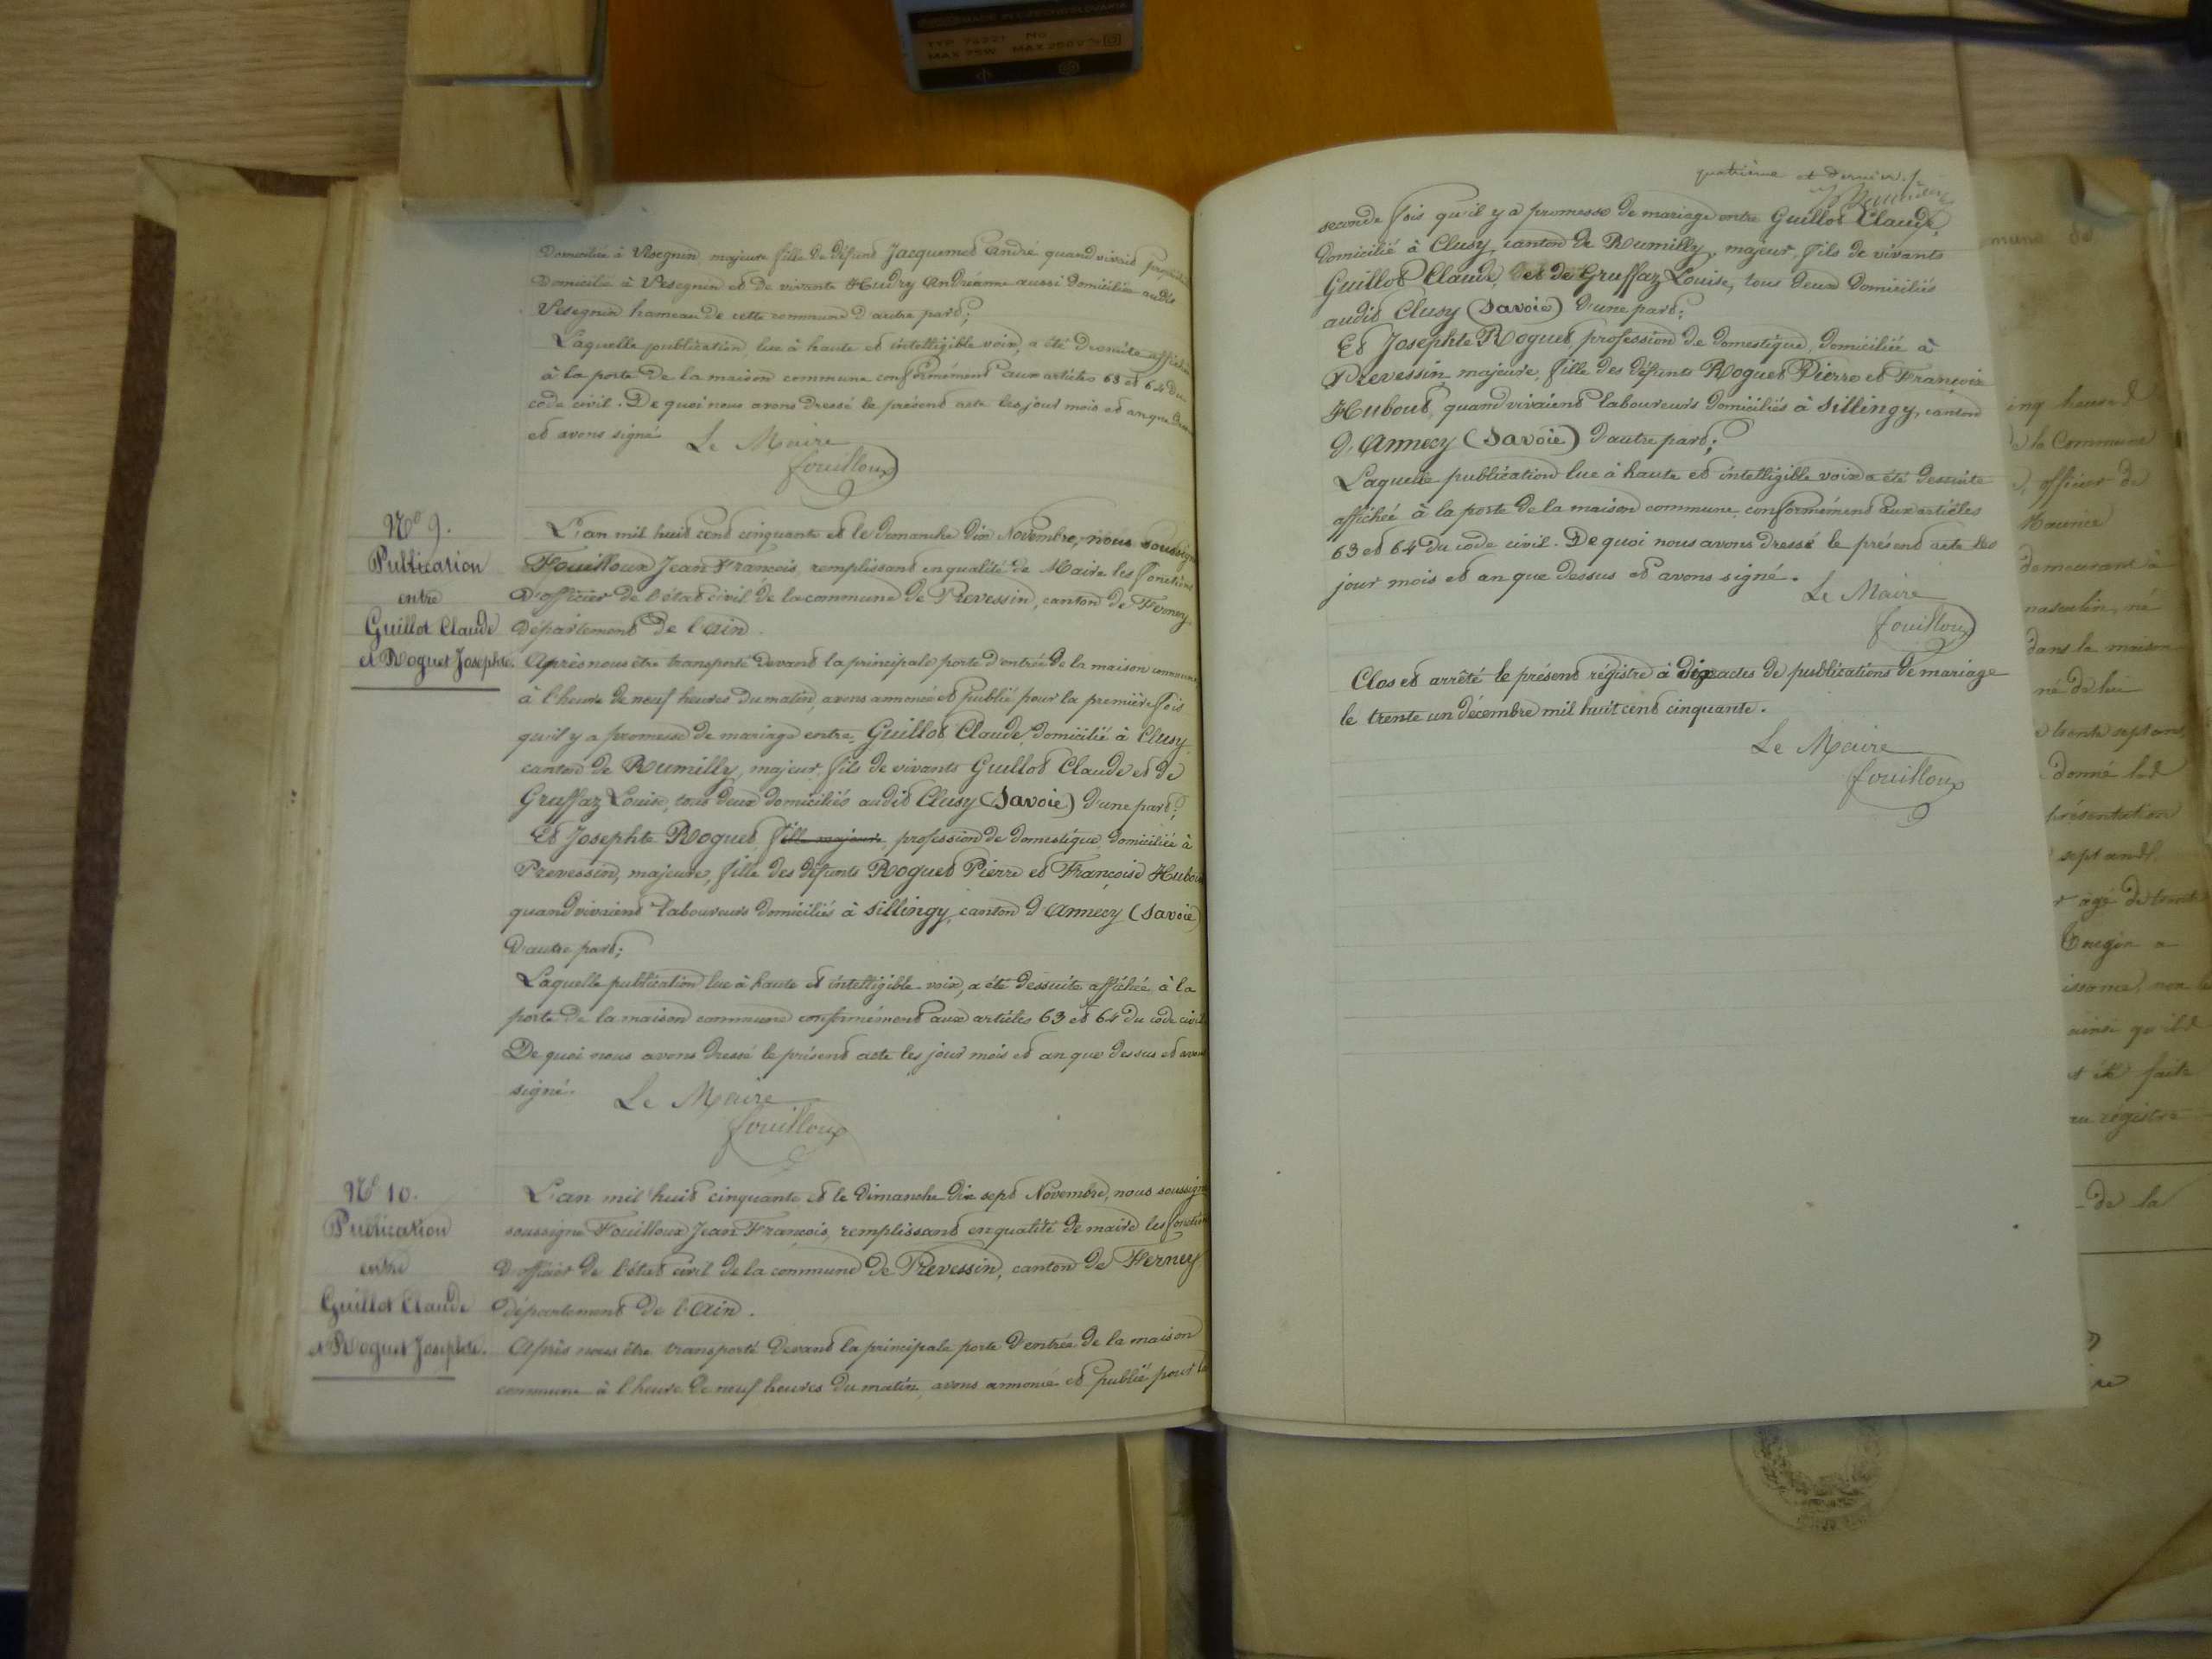 TYP 76221 No
MAX 25W MAX 250V
domiciliée à Vesegnin, majeure fille de défunt Jacquemet André quand vivait
domicilié à Vesegnin et de vivante Hudry Andréanne aussi domiciliée audit
Vesegnin hameau de cette commune d'autre part;
Laquelle publication lue à haute et intelligible voix, a été densuite affichée
à la porte de la maison commune conformément aux articles 63 et 64 du
code civil. De quoi nous avons dressé le présent acte les jour mois et an que dessus
et avons signé
Le Maire
fouilloux
No 9.
Publication
entre
Guillot Claude
et Roguet Josephte.
L'an mil huit cent cinquante et le dimanche dix Novembre, nous soussigné
Fouilloux Jean François, remplissant en qualité de Maire les fonctions
d'officier de l'état civil de la commune de Prevessin, canton de Ferney
département de l'Ain.
Après nous être transporté devant la principale porte d'entrée de la maison commune
à l'heure de neuf heures du matin, avons annoncé et publié pour la première fois
qu'il y a promesse de mariage entre Guillot Claude, domicilié à Clusy
canton de Rumilly, majeur, fils de vivants Guillot Claude et de
Gruffaz Louise, tous deux domiciliés audit Clusy (Savoie) d'une part;
Et Josephte Roguet, fille majeure, profession de domestique, domiciliée à
Prevessin, majeure, fille des défunts Roguet Pierre et Françoise Hubout
quand vivaient laboureurs domiciliés à Sillingy, canton d'Annecy (Savoie)
d'autre part;
Laquelle publication lue à haute et intelligible voix, a été dessuite affichée à la
porte de la maison commune conformément aux articles 63 et 64 du code civil
De quoi nous avons dressé le présent acte les jour mois et an que dessus et avons
signé.
Le Maire
fouilloux
No 10.
Publication
entre
Guillot Claude
et Roguet Josephte.
L'an mil huit cinquante et le dimanche dix sept Novembre, nous soussigné
soussigné Fouilloux Jean François, remplissant en qualité de maire les fonctions
d'officier de l'état civil de la commune de Prevessin, canton de Ferney
département de l'Ain.
Après nous être transporté devant la principale porte d'entrée de la maison
commune à l'heure de neuf heures du matin, avons annoncé et publié pour la
quatrième et dernier
seconde fois qu'il y a promesse de mariage entre Guillot Claude,
domicilié à Clusy, canton de Rumilly, majeur, fils de vivants
Guillot Claude, et de Gruffaz Louise, tous deux domiciliés
audit Clusy (Savoie) d'une part;
Et Josephte Roguet, profession de domestique, domiciliée à
Prevessin, majeure, fille des défunts Roguet Pierre et Françoise
Hubout, quand vivaient laboureurs domiciliés à Sillingy, canton
d'Annecy (Savoie) d'autre part;
Laquelle publication lue à haute et intelligible voix a été dessuite
affichée à la porte de la maison commune, conformément aux articles
63 et 64 du code civil. De quoi nous avons dressé le présent acte les
jour mois et an que dessus et avons signé.
Le Maire
fouilloux
Clos et arrêté le présent régistre à dix actes de publications de mariage
le trente un décembre mil huit cent cinquante.
Le Maire
fouilloux
inq heures
de la Commune
officier de
Maurice
demeurant à
masculin, né
dans la maison
né de lui
trente sept ans,
donné
présentation
sept ans
âgé de trente
ainsi qu'il
été faite
au régistre
de la